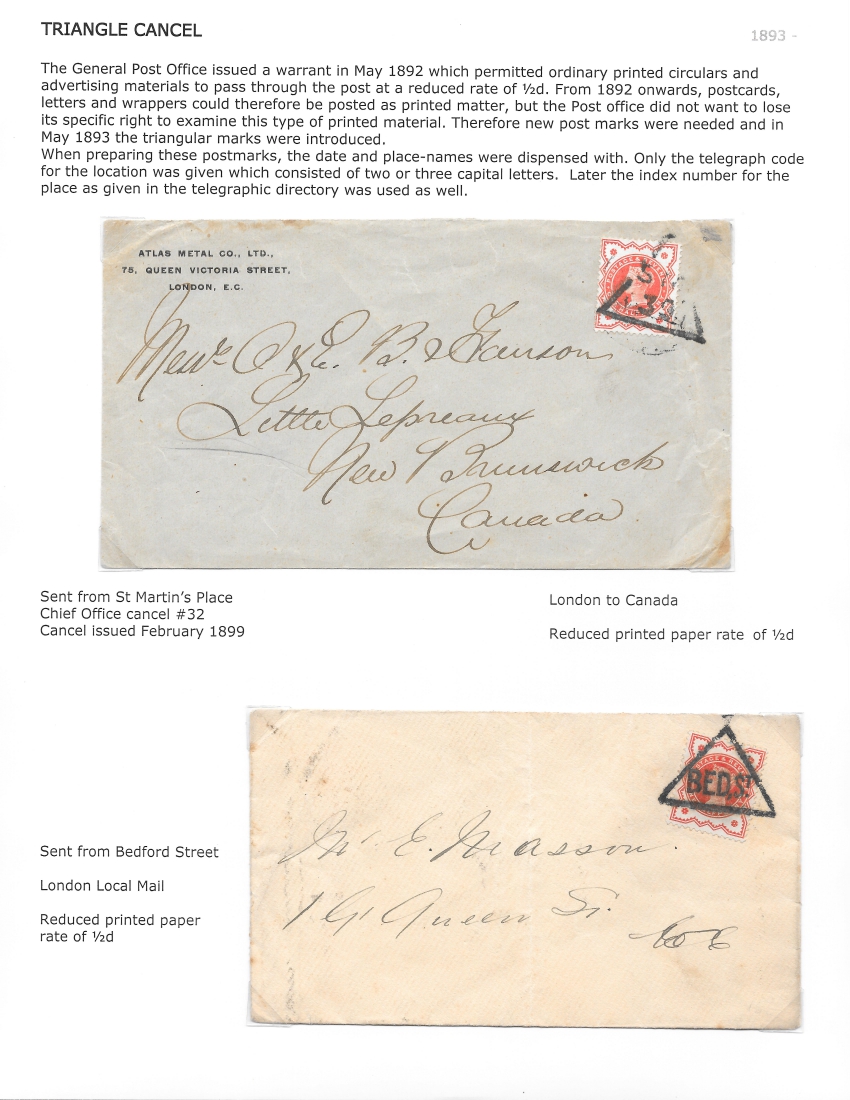 TRIANGLE CANCEL
1893 -
The General Post Office issued a warrant in May 1892 which permitted ordinary printed circulars and
advertising materials to pass through the post at a reduced rate of ½d. From 1892 onwards, postcards,
letters and wrappers could therefore be posted as printed matter, but the Post office did not want to lose
its specific right to examine this type of printed material. Therefore new post marks were needed and in
May 1893 the triangular marks were introduced.
When preparing these postmarks, the date and place-names were dispensed with. Only the telegraph code
for the location was given which consisted of two or three capital letters.  Later the index number for the
place as given in the telegraphic directory was used as well.
ATLAS METAL CO., LTD.,
75, QUEEN VICTORIA STREET,
LONDON, E.C.
& E. B.
Little Lepreaux
New Brunswick
Canada
Sent from St Martin's Place
Chief Office cancel #32
Cancel issued February 1899
London to Canada
Reduced printed paper rate of ½d
BED,ST
Mr E. Masson.
Queen St.
Sent from Bedford Street
London Local Mail
Reduced printed paper
rate of ½d